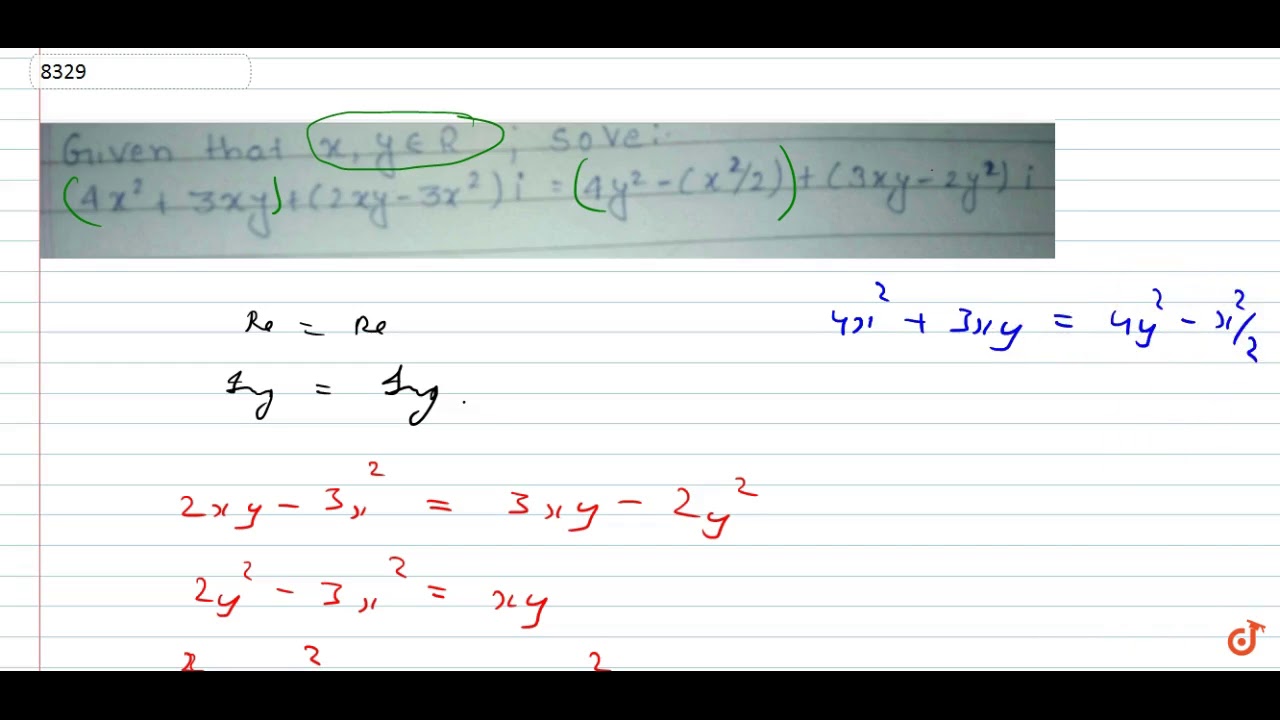 8329
Given that x, y ∈ R ; solve:
(4x² + 3xy) + (2xy - 3x²) i = (4y² - (x²/2)) + (3xy - 2y²) i
Re = Re
4x² + 3xy = 4y² - x²/2
Img = Img.
2xy - 3x² = 3xy - 2y²
2y² - 3x² = xy